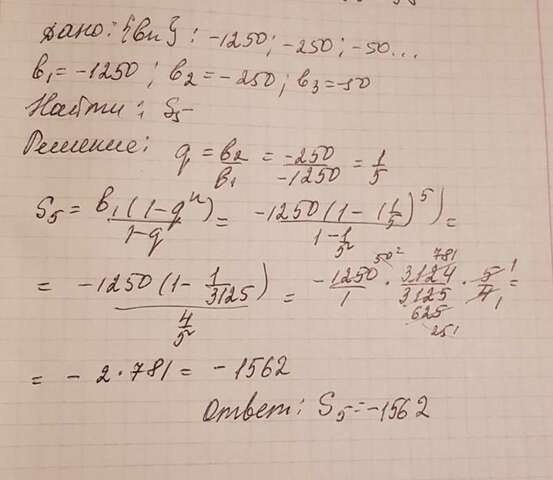 Дано: {bn}: -1250; -250; -50...
b₁ = -1250; b₂ = -250; b₃ = -50
Найти: S₅-
Решение: q = b₂/b₁ = -250/-1250 = 1/5
S₅ = b₁(1-qⁿ)/1-q = -1250(1-(1/5)⁵)/1-1/5 =
= -1250(1-1/3125)/4/5 = -1250/1 · 3124/3125 · 5/4 =
= -2·781 = -1562
Ответ: S₅ = -1562